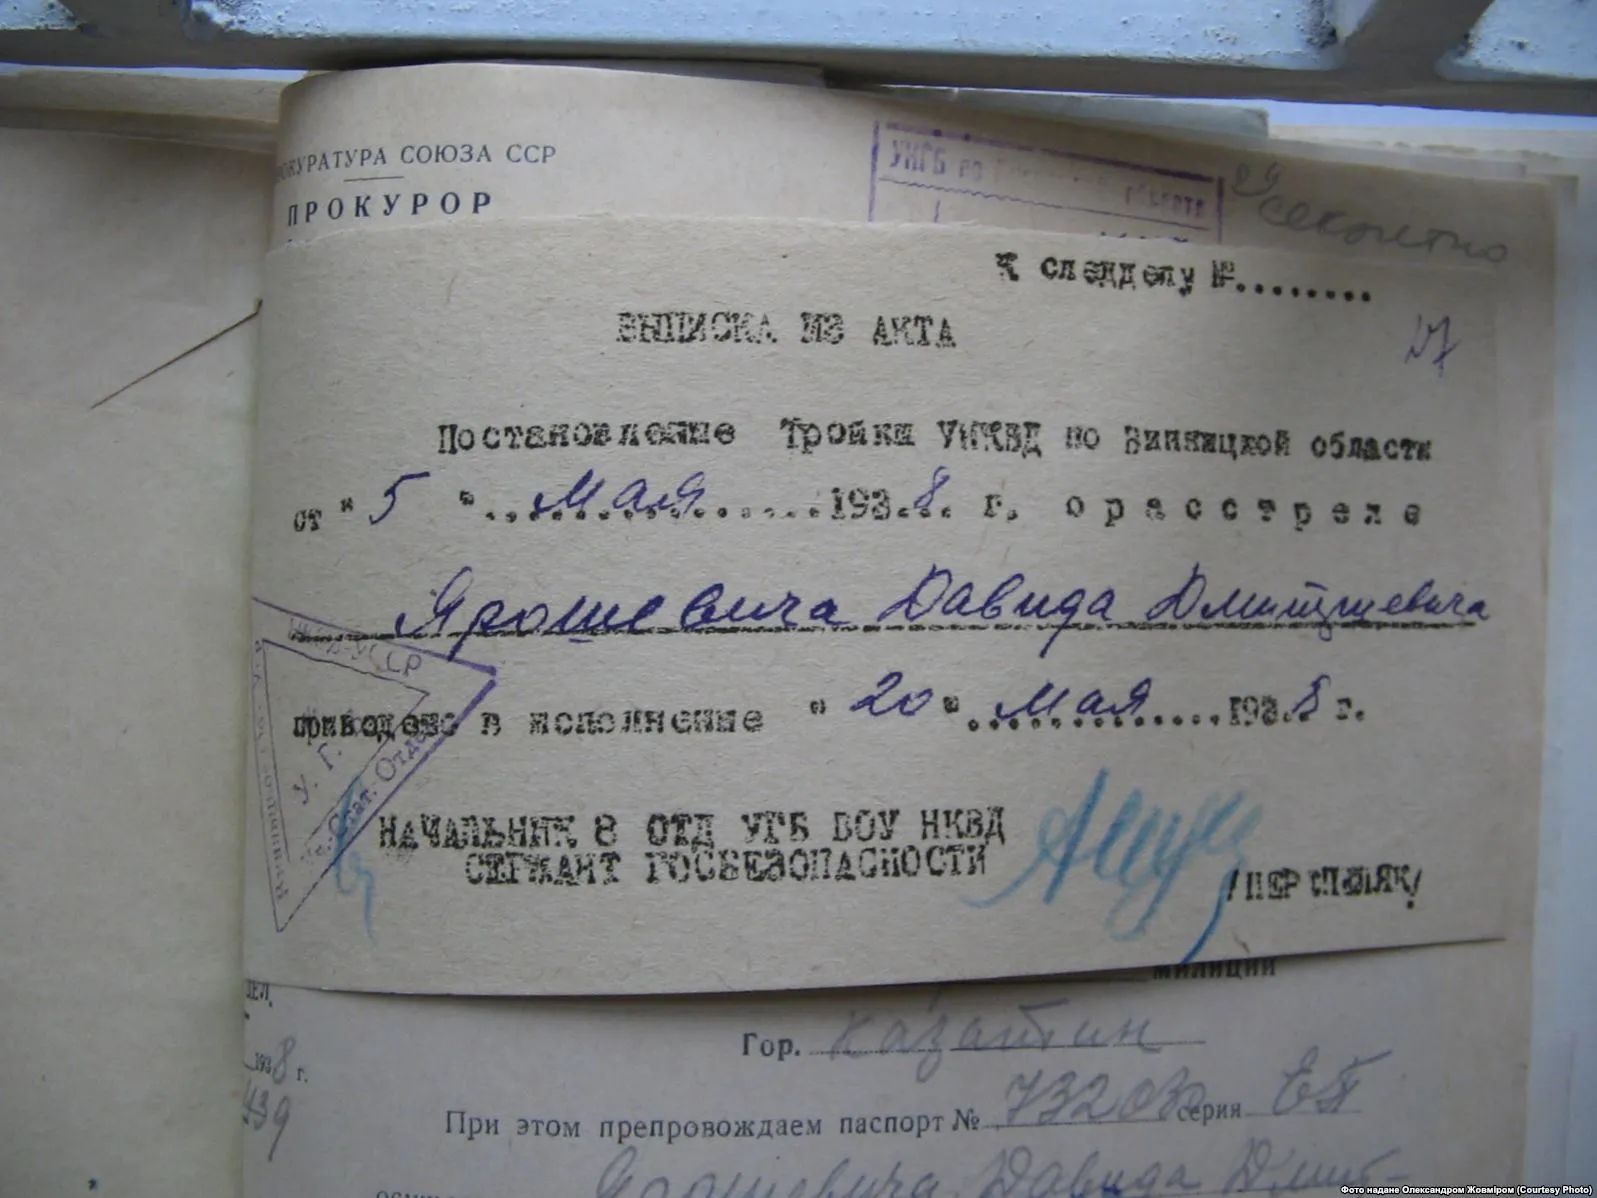 ПРОКУРАТУРА СОЮЗА ССР
ПРОКУРОР
УНГБ по области
секретно
К следделу №........
27
ВЫПИСКА ИЗ АКТА
Постановление Тройки УНКВД по Винницкой области
от "5" ...Мая... 1938 г. о расстреле
Ярошевича Давида Дмитриевича
приведено в исполнение "20" ...Мая... 1938 г.
НАЧАЛЬНИК 8 ОТД УГБ ВОУ НКВД
СЕРЖАНТ ГОСБЕЗОПАСНОСТИ
НКВД УССР
У. Г.
Стат. Отдел
милиции
Гор. Казатин
1938 г.
439
При этом препровождаем паспорт № 732030 серия ЕТ
Ярошевича Давида Дмит-
Фото надане Олександром Жовміром (Courtesy Photo)